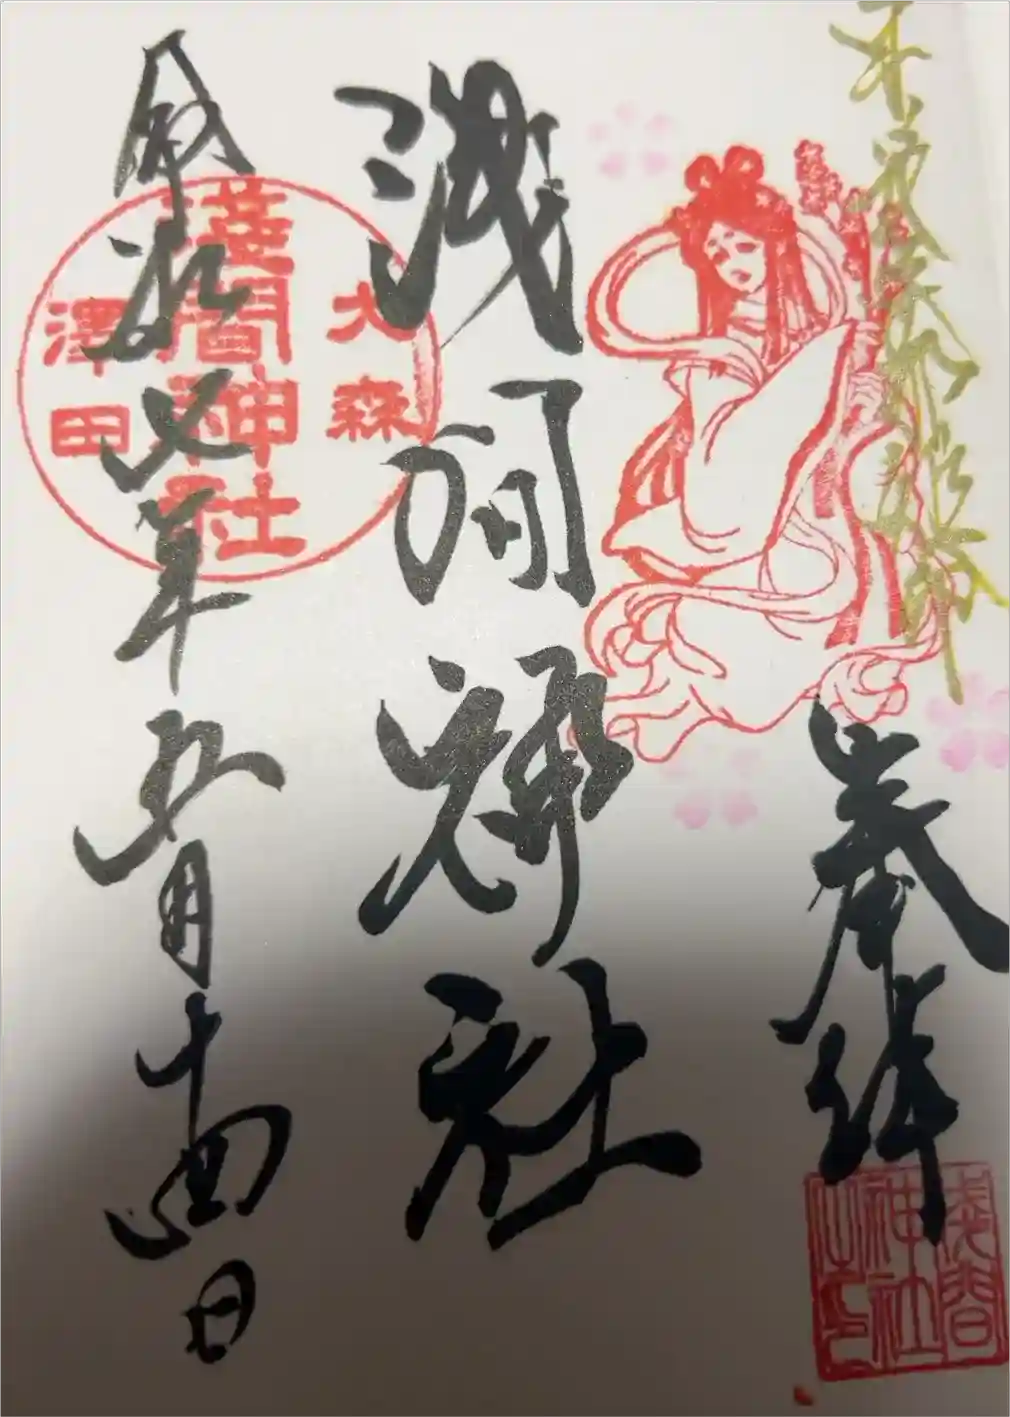 奉拝
浅間神社
令和六年五月十四日
大森
淺間神社
澤田
浅間
神社
之印